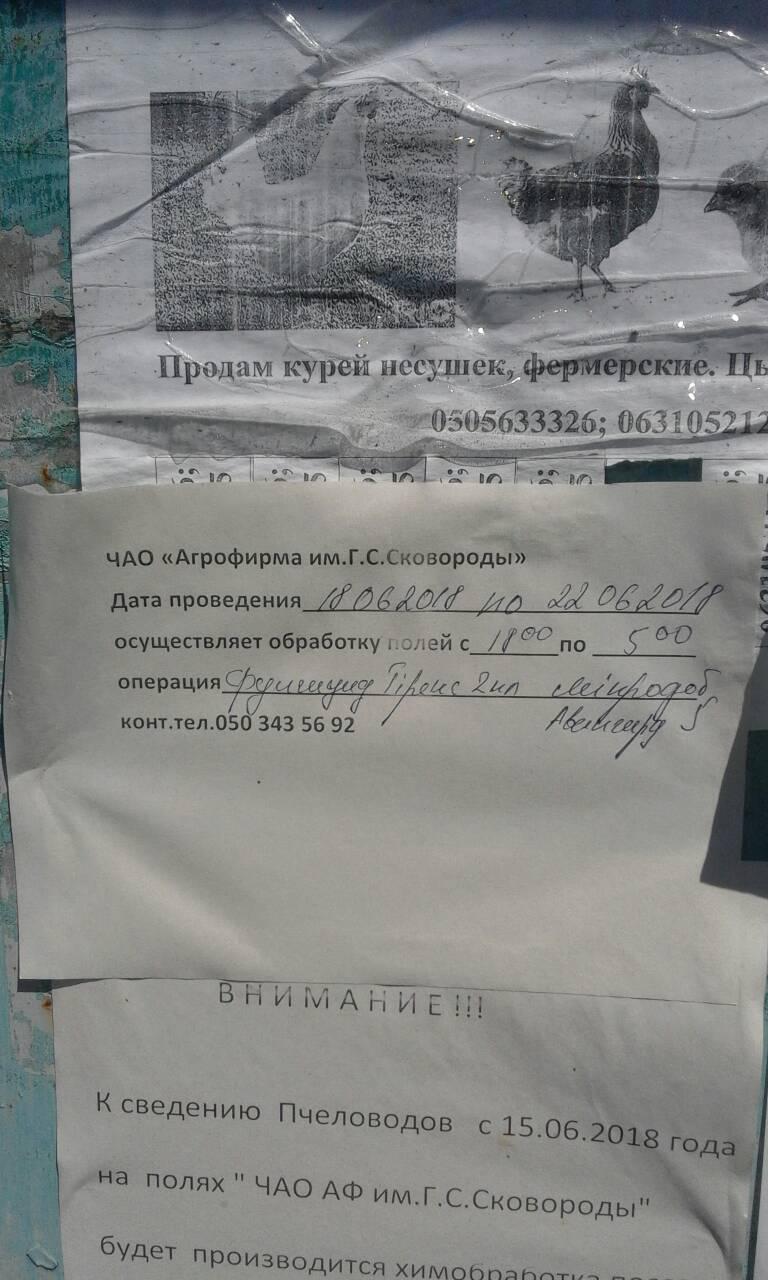 Продам курей несушек, фермерские. Цы
0505633326; 063105212
ЧАО «Агрофирма им.Г.С.Сковороды»
Дата проведения 18 06 2018 по 22 06 2018
осуществляет обработку полей с 18 00 по 5 00
операция Фунгицид 2кл мікродоб
Авангард
конт.тел.050 343 56 92
ВНИМАНИЕ!!!
К сведению Пчеловодов с 15.06.2018 года
на полях " ЧАО АФ им.Г.С.Сковороды"
будет производится химобработка